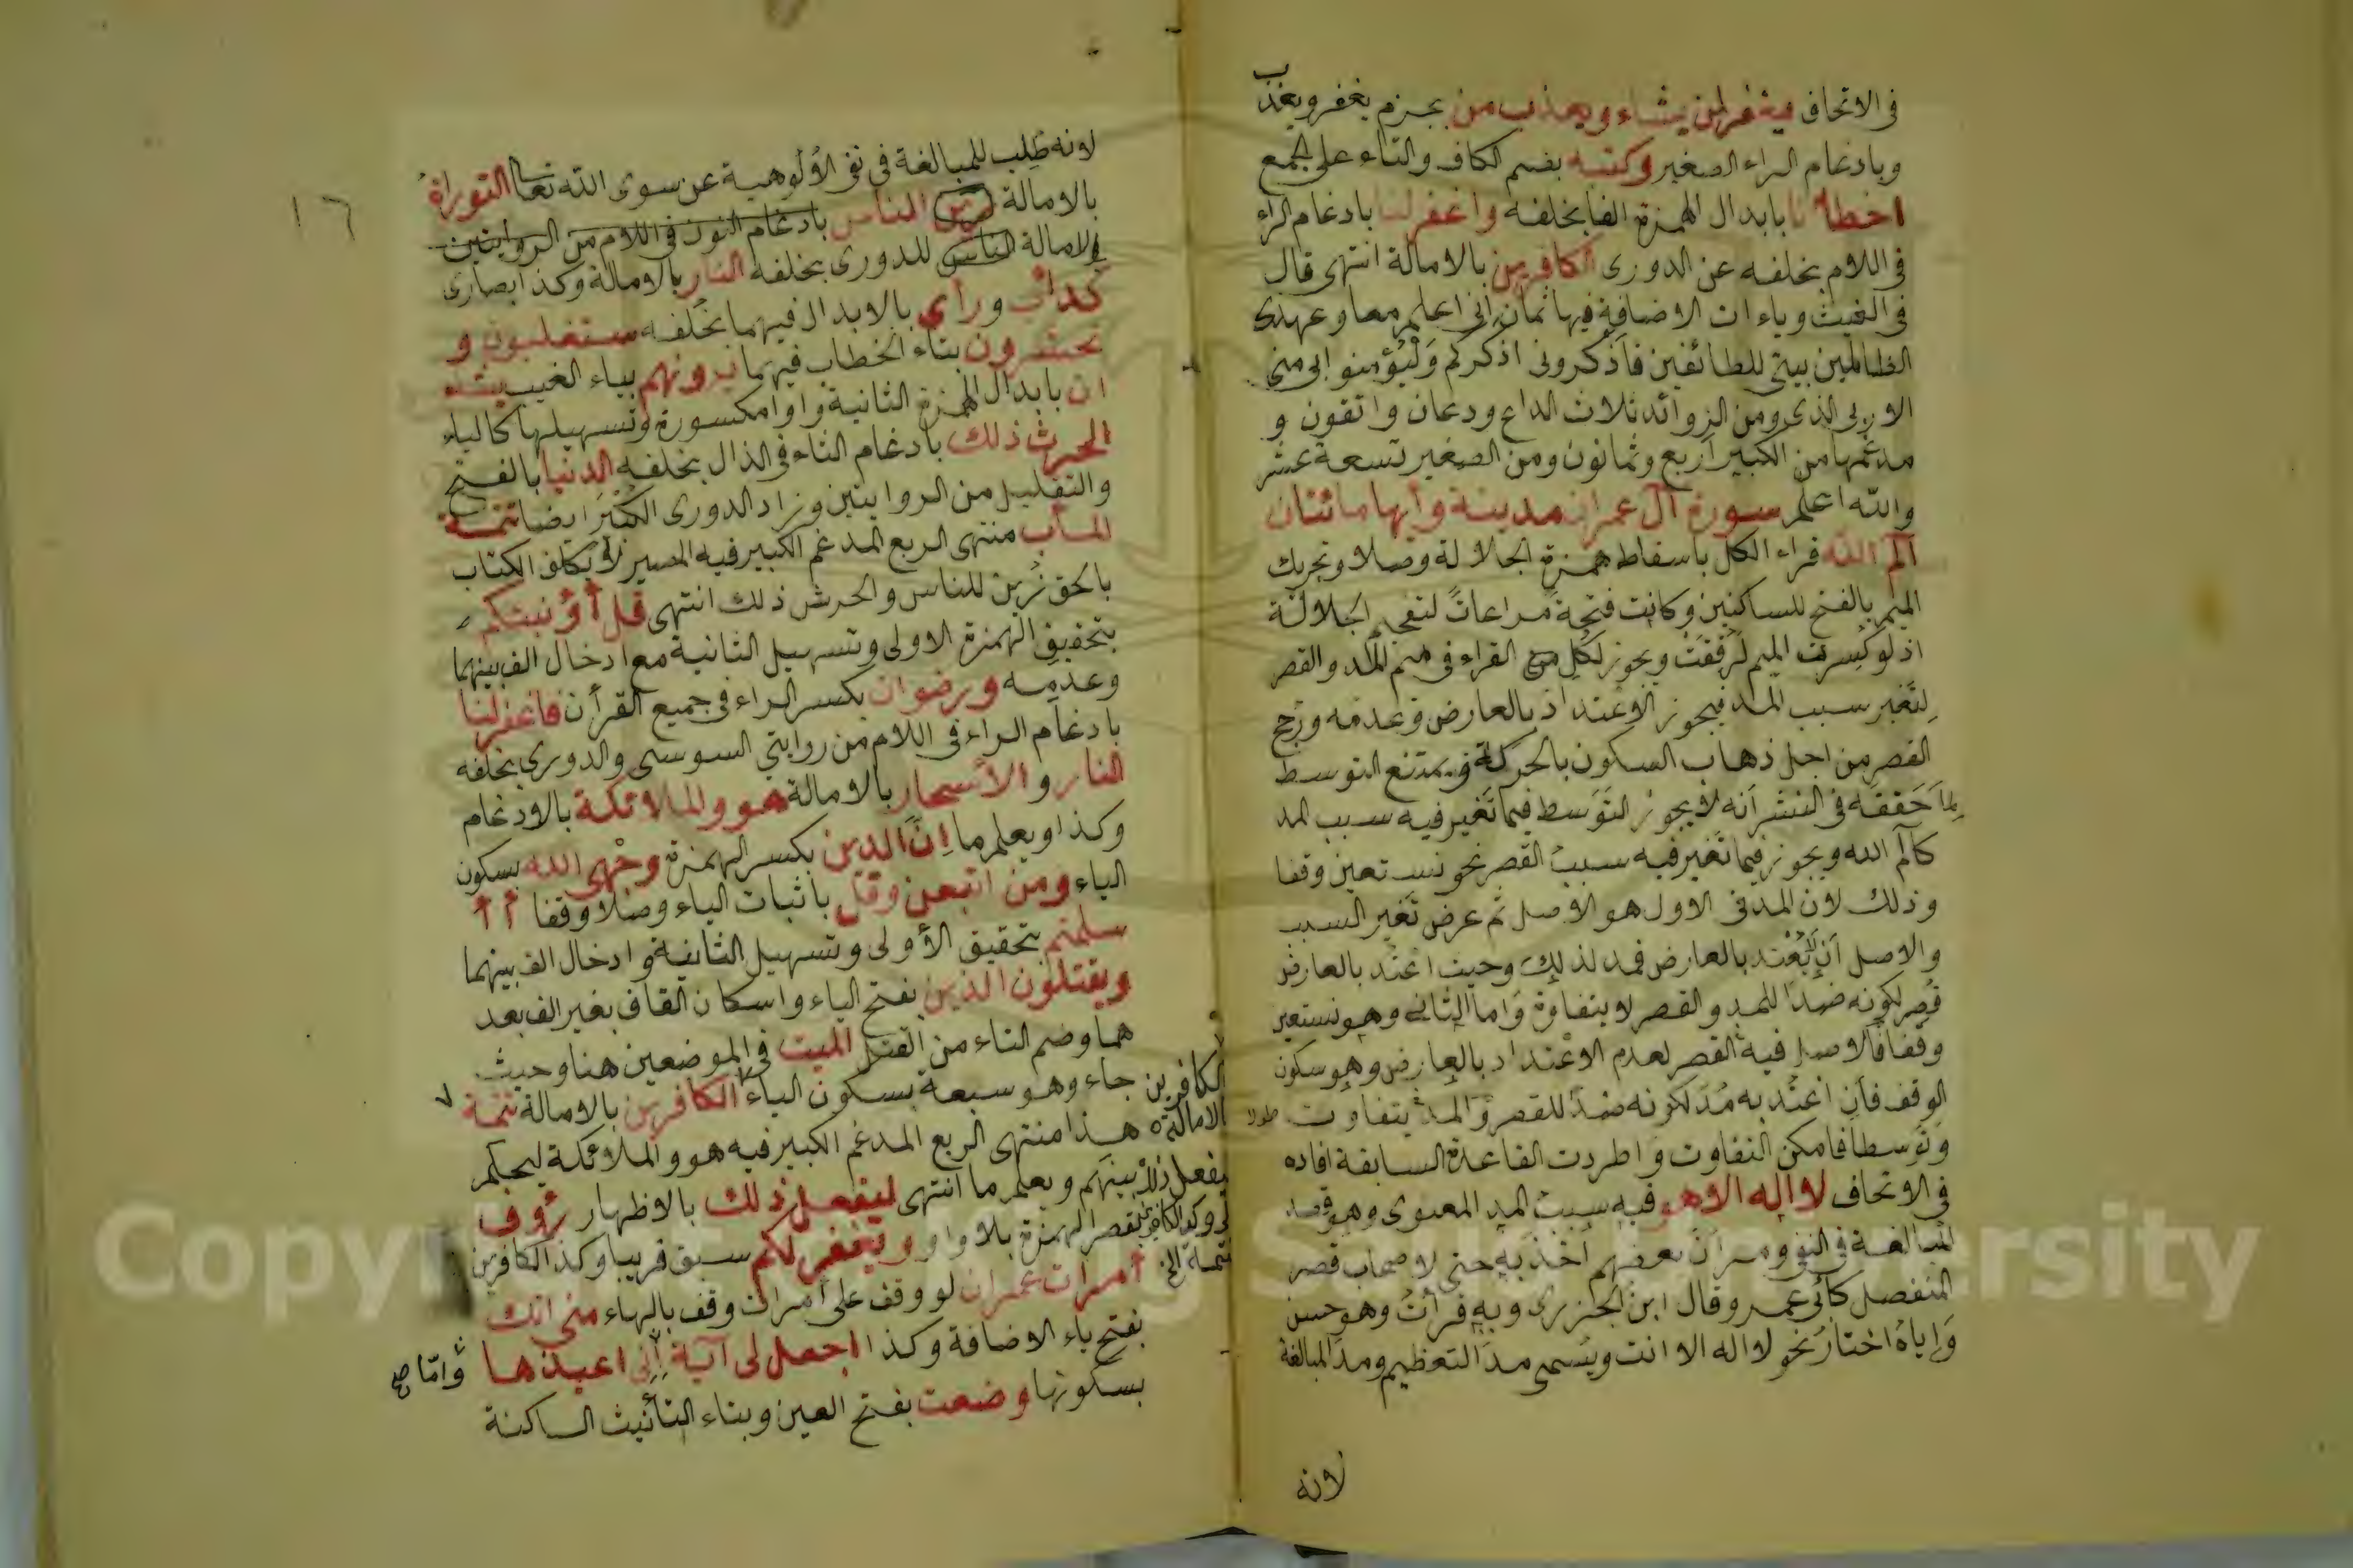 في الاتحاف فيغفر لمن يشاء ويعذب من بجزم يغفر ويعذب
وبادغام الراء الصغير وكتبه بضم الكاف والتاء على الجمع
اخطأنا بابدال الهمزة الفا بخلفه واغفر لنا بادغام الراء
في اللام بخلفه عن الدوري الكافرين بالامالة انتهى قال
في الغيث وياءات الاضافة فيها ثمان اني اعلم معا وعهدي
الظالمين بيتي للطائفين فاذكروني اذكركم وليؤمنوا بي مني
الا ربي الذي ومن الزوائد ثلاث الداع ودعان واتقون و
مدغمها من الكبير اربع وثمانون ومن الصغير تسعة عشر
والله اعلم سورة آل عمران مدينة وآيها مائتان
الم الله قراء الكل باسقاط همزة الجلالة وصلا وتحريك
الميم بالفتح للساكنين وكانت فتحة مراعاتً لتفخيم الجلالة
اذ لو كُسرت الميم لرُقِّقَتْ ويجوز لكل من القراء في ميم المد والقصر
لتَغَير سبب المد فيجوز الاعتداد بالعارض وعدمه ورجح
القصر من اجل ذهاب السكون بالحركة ويمتنع التوسط
لِمَا حَقَّقَه في النشر انه لا يجوز التَوَسط فيما تَغَير فيه سبب المد
كالم الله ويجوز فيما تَغَير فيه سبب القصر نحو نستعين وقفا
وذلك لان المد في الاول هو الاصل ثم عرض تَغَير السبب
والاصل اَن لا يُعْتد بالعارض فمد لذلك وحيث اعتُد بالعارض
قُصِر لكونه ضدًا للمد والقصر لا يتفاوت وَاما الثاني وهو نستعين
وقفًا فالاصل فيه القصر لعدم الاعتداد بالعارض وهو سكون
الوقف فاِن اعتُد به مُدَّ لكونه ضدًّا للقصر وَالمد يتفاوت طولا
وَتَوَسطا فامكن التفاوت وَاطردت القاعدة السابقة افاده
في الاتحاف لا اله الا هو فيه سبب المد المعنوي وهو قصد
المبالغة في النفي ومر أن بعضهم اَخَذ به حتى لاصحاب قصر
المنفصل كأبي عمرو وقال ابن الجزري وبه قرأتُ وهو حسن
وَإياهُ اختارُ نحو لا اله الا انت ويُسمى مدَ التعظيم ومدَ المبالغة
لانه
١٦
لانه طَلِب للمبالغة في نفي الأُلُوهية عن سوى الله تعالى التوراة
بالامالة زين الناس بادغام النون في اللام من الروايتين
والامالة الناس للدوري بخلفه النار بالامالة وكذا ابصارى
كدأب ورأي بالابدال فيهما بخُلفه ستغلبون و
تحشرون بتاء الخطاب فيهما يرونهم بياء الغيب يشاء
ان بابدال الهمزة الثانية واوا مكسورة وتسهيلها كالياء
الحرث ذلك بادغام الثاء في الذال بخلفه الدنيا بالفتح
والتقليل من الروايتين وزاد الدوري الكُبْرَا ايضا تتمة
المآب منتهى الربع المدغم الكبير فيه المصير لا يكلف الكتاب
بالحق زُين للناس والحرث ذلك انتهى قل أؤنبئكم
بتحقيق الهمزة الاولى وتسهيل الثانية مع ادخال الف بينهما
وعدمه ورضوان بكسر الراء في جميع القرأن فاغفر لنا
بادغام الراء في اللام من روايتي السوسي والدوري بخلفه
النار والأسحار بالامالة هو والملائكة بالادغام
وكذا ويعلم ما اِنَّ الدين بكسر الهمزة وجْهي الله بسكون
الياء ومن اتبعن وقل باثبات الياء وصلا وقفا أأ
سلمتم بتحقيق الأولى وتسهيل الثانية وادخال الف بينهما
ويقتلون الذين بفتح الياء واسكان القاف بغير الف بعد
هما وضم التاء من القتل الميت في الموضعين هنا وحيث
جاء وهو سبعة بسكون الياء الكافرين بالامالة تتمة ٧
هذا منتهى الربع المدغم الكبير فيه هو والملائكة ليحكم
بينهم ويعلم ما انتهى ليفعل ذلك بالاظهار رؤف
بقصر الهمزة بلا واو ويغفر لكم سبق قريبا وكذا الكافرين
أمرات عمران لو وقف على أمرات وقف بالهاء مني انك
بفتح ياء الاضافة وكذا اجعل لي آية إني اعيذها وَامّا صح
بسكونها وضعت بفتح العين وبتاء التأنيث الساكنة
الكافرين
الامالة
يفعل ذلك
تتمة الخ
Copyright © King Saud University